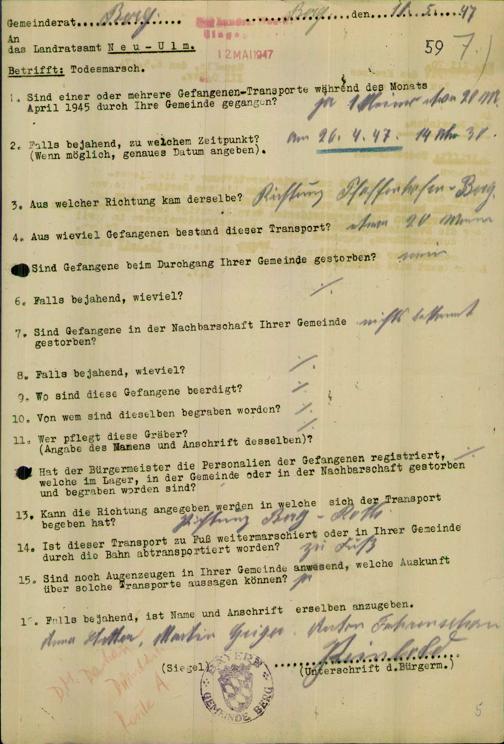 Gemeinderat... Berg ......... Berg ....., den 10.5.47
An
das Landratsamt Neu-Ulm.
12 MAI 1947
59 7
Betrifft: Todesmarsch.
1. Sind einer oder mehrere Gefangenen-Transporte während des Monats
April 1945 durch Ihre Gemeinde gegangen? ja 1 kleiner etwa 20 M.
2. Falls bejahend, zu welchem Zeitpunkt? am 26.4.47. 14 Uhr 30.
(Wenn möglich, genaues Datum angeben).
3. Aus welcher Richtung kam derselbe? Richtung Pfaffenhofen - Berg.
4. Aus wieviel Gefangenen bestand dieser Transport? etwa 20 Mann
Sind Gefangene beim Durchgang Ihrer Gemeinde gestorben? nein
6. Falls bejahend, wieviel? ./.
7. Sind Gefangene in der Nachbarschaft Ihrer Gemeinde nichts bekannt
gestorben?
8. Falls bejahend, wieviel? ./.
9. Wo sind diese Gefangene beerdigt? ./.
10. Von wem sind dieselben begraben worden? ./.
11. Wer pflegt diese Gräber? ./.
(Angabe des Namens und Anschrift desselben)?
Hat der Bürgermeister die Personalien der Gefangenen registriert, ./.
welche im Lager, in der Gemeinde oder in der Nachbarschaft gestorben
und begraben worden sind?
13. Kann die Richtung angegeben werden in welche sich der Transport
begeben hat? Richtung Berg - Roth
14. Ist dieser Transport zu Fuß weitermarschiert oder in Ihrer Gemeinde
durch die Bahn abtransportiert worden? zu Fuß
15. Sind noch Augenzeugen in Ihrer Gemeinde anwesend, welche Auskunft
über solche Transporte aussagen können? ja
1. Falls bejahend, ist Name und Anschrift erselben anzugeben.
Anna, Martin Geiger, Anton
(Siegel) ....................
(Unterschrift d.Bürgerm.)
BAYERN
GEMEINDE BERG
5